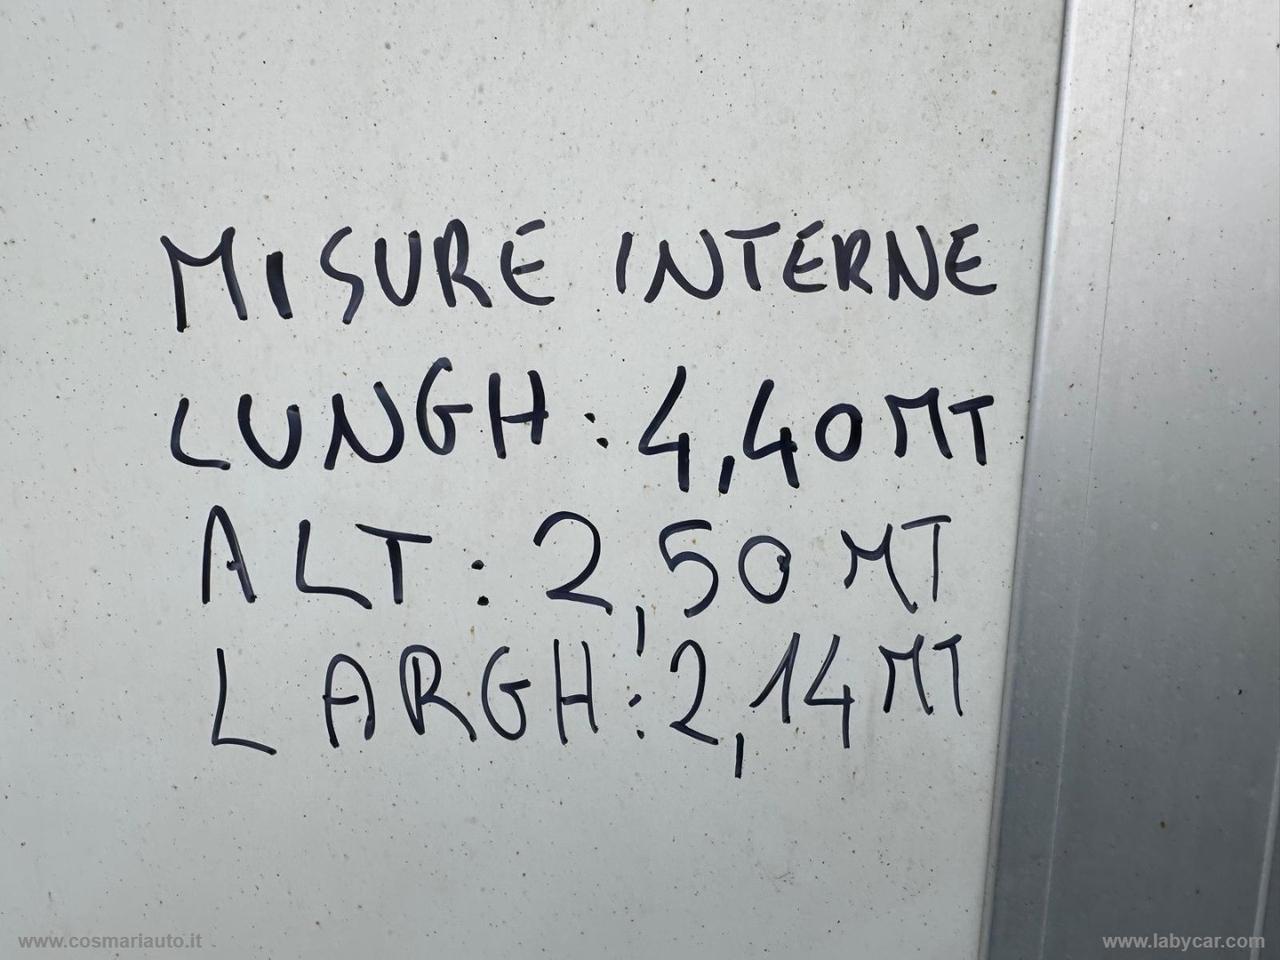 MISURE INTERNE
LUNGH: 4,40 MT
ALT: 2,50 MT
LARGH: 2,14 MT
www.cosmariauto.it
www.labycar.com